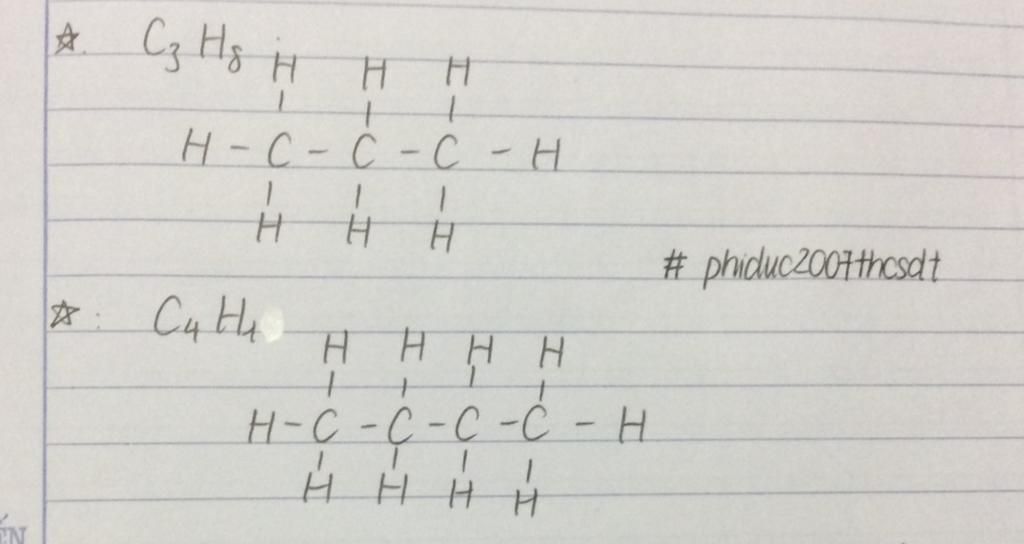 ☆. C₃H₈
H H H
| | |
H - C - C - C - H
| | |
H H H
# phiduc2007thcsdt
☆: C₄H₁
H H H H
| | | |
H - C - C - C - C - H
| | | |
H H H H